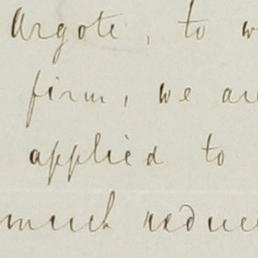 Argote, to w
firm, we are
applied to
much reduce